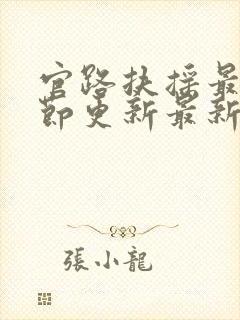 官路扶摇最
节更新最新
張小龍